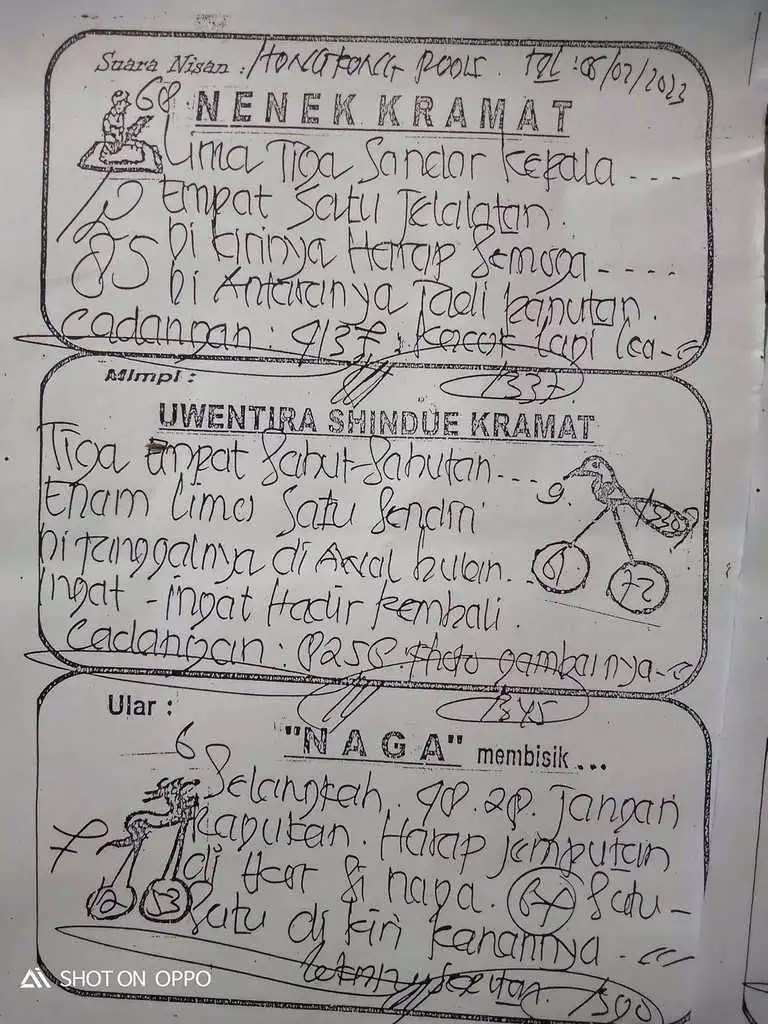 Suara Nisan : HONGKONG POOLS. Tgl : 05/02/2023
68
NENEK KRAMAT
Lima Tiga Sandar Kepala ...
Empat Satu Jelalatan.
Di kirinya Harap Semoga ....
85
Di Antaranya Jadi panutan.
Cadangan : 9137. Kocok lapi
1337
Mimpi :
UWENTIRA SHINDUE KRAMAT
Tiga empat Sahut-Sahutan...
9.
Enam Lima Satu Sendiri
Di Tanggalnya di Awal bulan.
61
72
Ingat - ingat Hadir Kembali.
Cadangan : 8258. photo gambarnya
1345
Ular :
6
"NAGA" membisik ...
Selangkah. 98. 28. Jangan
7
Harap jemputan
di & naga. 67 Satu -
12 53
Satu di kiri kanannya.
1390
SHOT ON OPPO